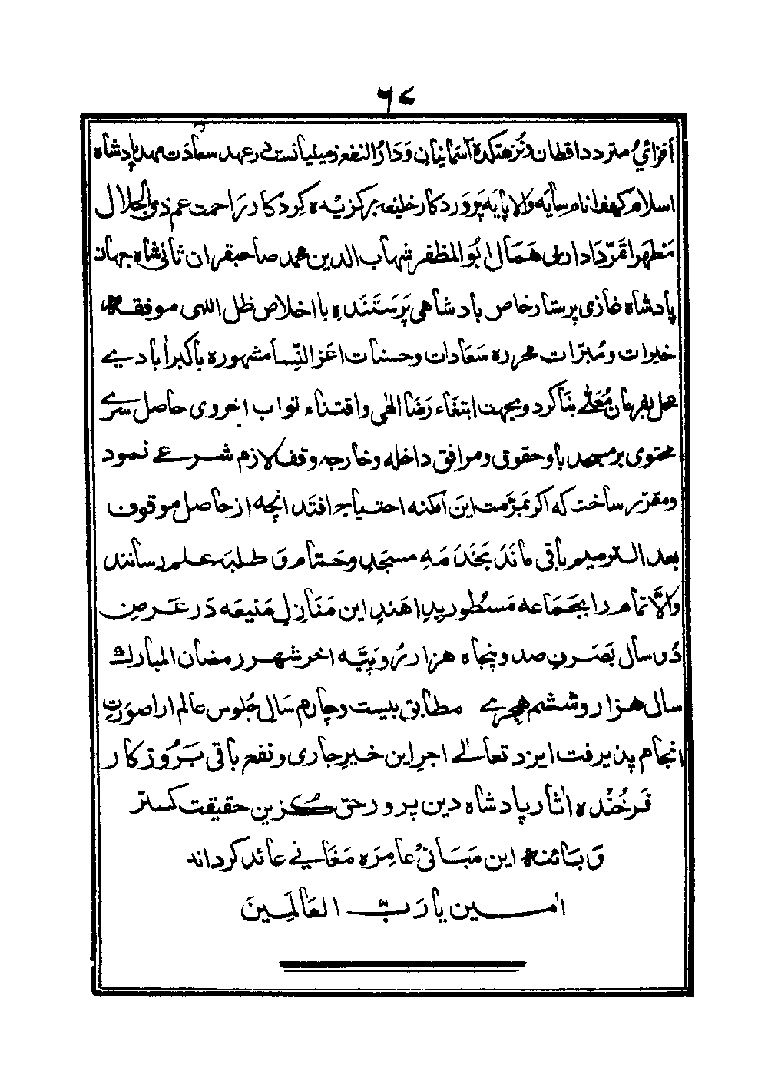 ۶۷
افزای متردد اقطان و نزهتکده آسمانیان و دار النفع زمینیانست در عهد سعادت مهد پادشاه
اسلام کهف انام سایه والا پایه پروردکار خلیفه برکزیده کردکار راحمت عم ذی الجلال
مظهر اتم داد ار بی همال ابو المظفر شهاب الدین محمد صاحبقران ثانی شاه جهان
پادشاه غازی پرستار خاص پادشاهی پرستنده با اخلاص ظل اللهی موفقه
خیرات و مبرات محرره سعادات و حسنات اعز النسا مشهوره باکبرابادی
محل بفرمان معلی بنا کرد و بجهت ابتغاء رضا الهی و اقتناء ثواب اخروی حاصل سرای
محتوی بر مسجد با و حقوقی و مرافق داخله و خارجه وقف لازم شرعی نمود
و مقرر ساخت که اکر بمرمت این امکنه احتیاج افتد انچه از حاصل موقوف
بعد الترمیم باقی ماند بخدمه مسجد و حمام و طلبه علم رسانند
والا تمام را بجماعه مسطور بدهند این منازل منیعه در عرض
دو سال بصرف صد و پنجاه هزار روپیه اخر شهر رمضان المبارک
سال هزار و ششم هجری مطابق بیست و چارم سال جلوس عالم ارا صورت
انجام پذیرفت ایزد تعالی اجر این خیر جاری و نفع باقی بروزکار
فرخنده اثار پادشاه دین پرور حق کزین حقیقت کستر
و بانیه این مبانی عامره معالی عائد کرداند
امین یا رب العالمین